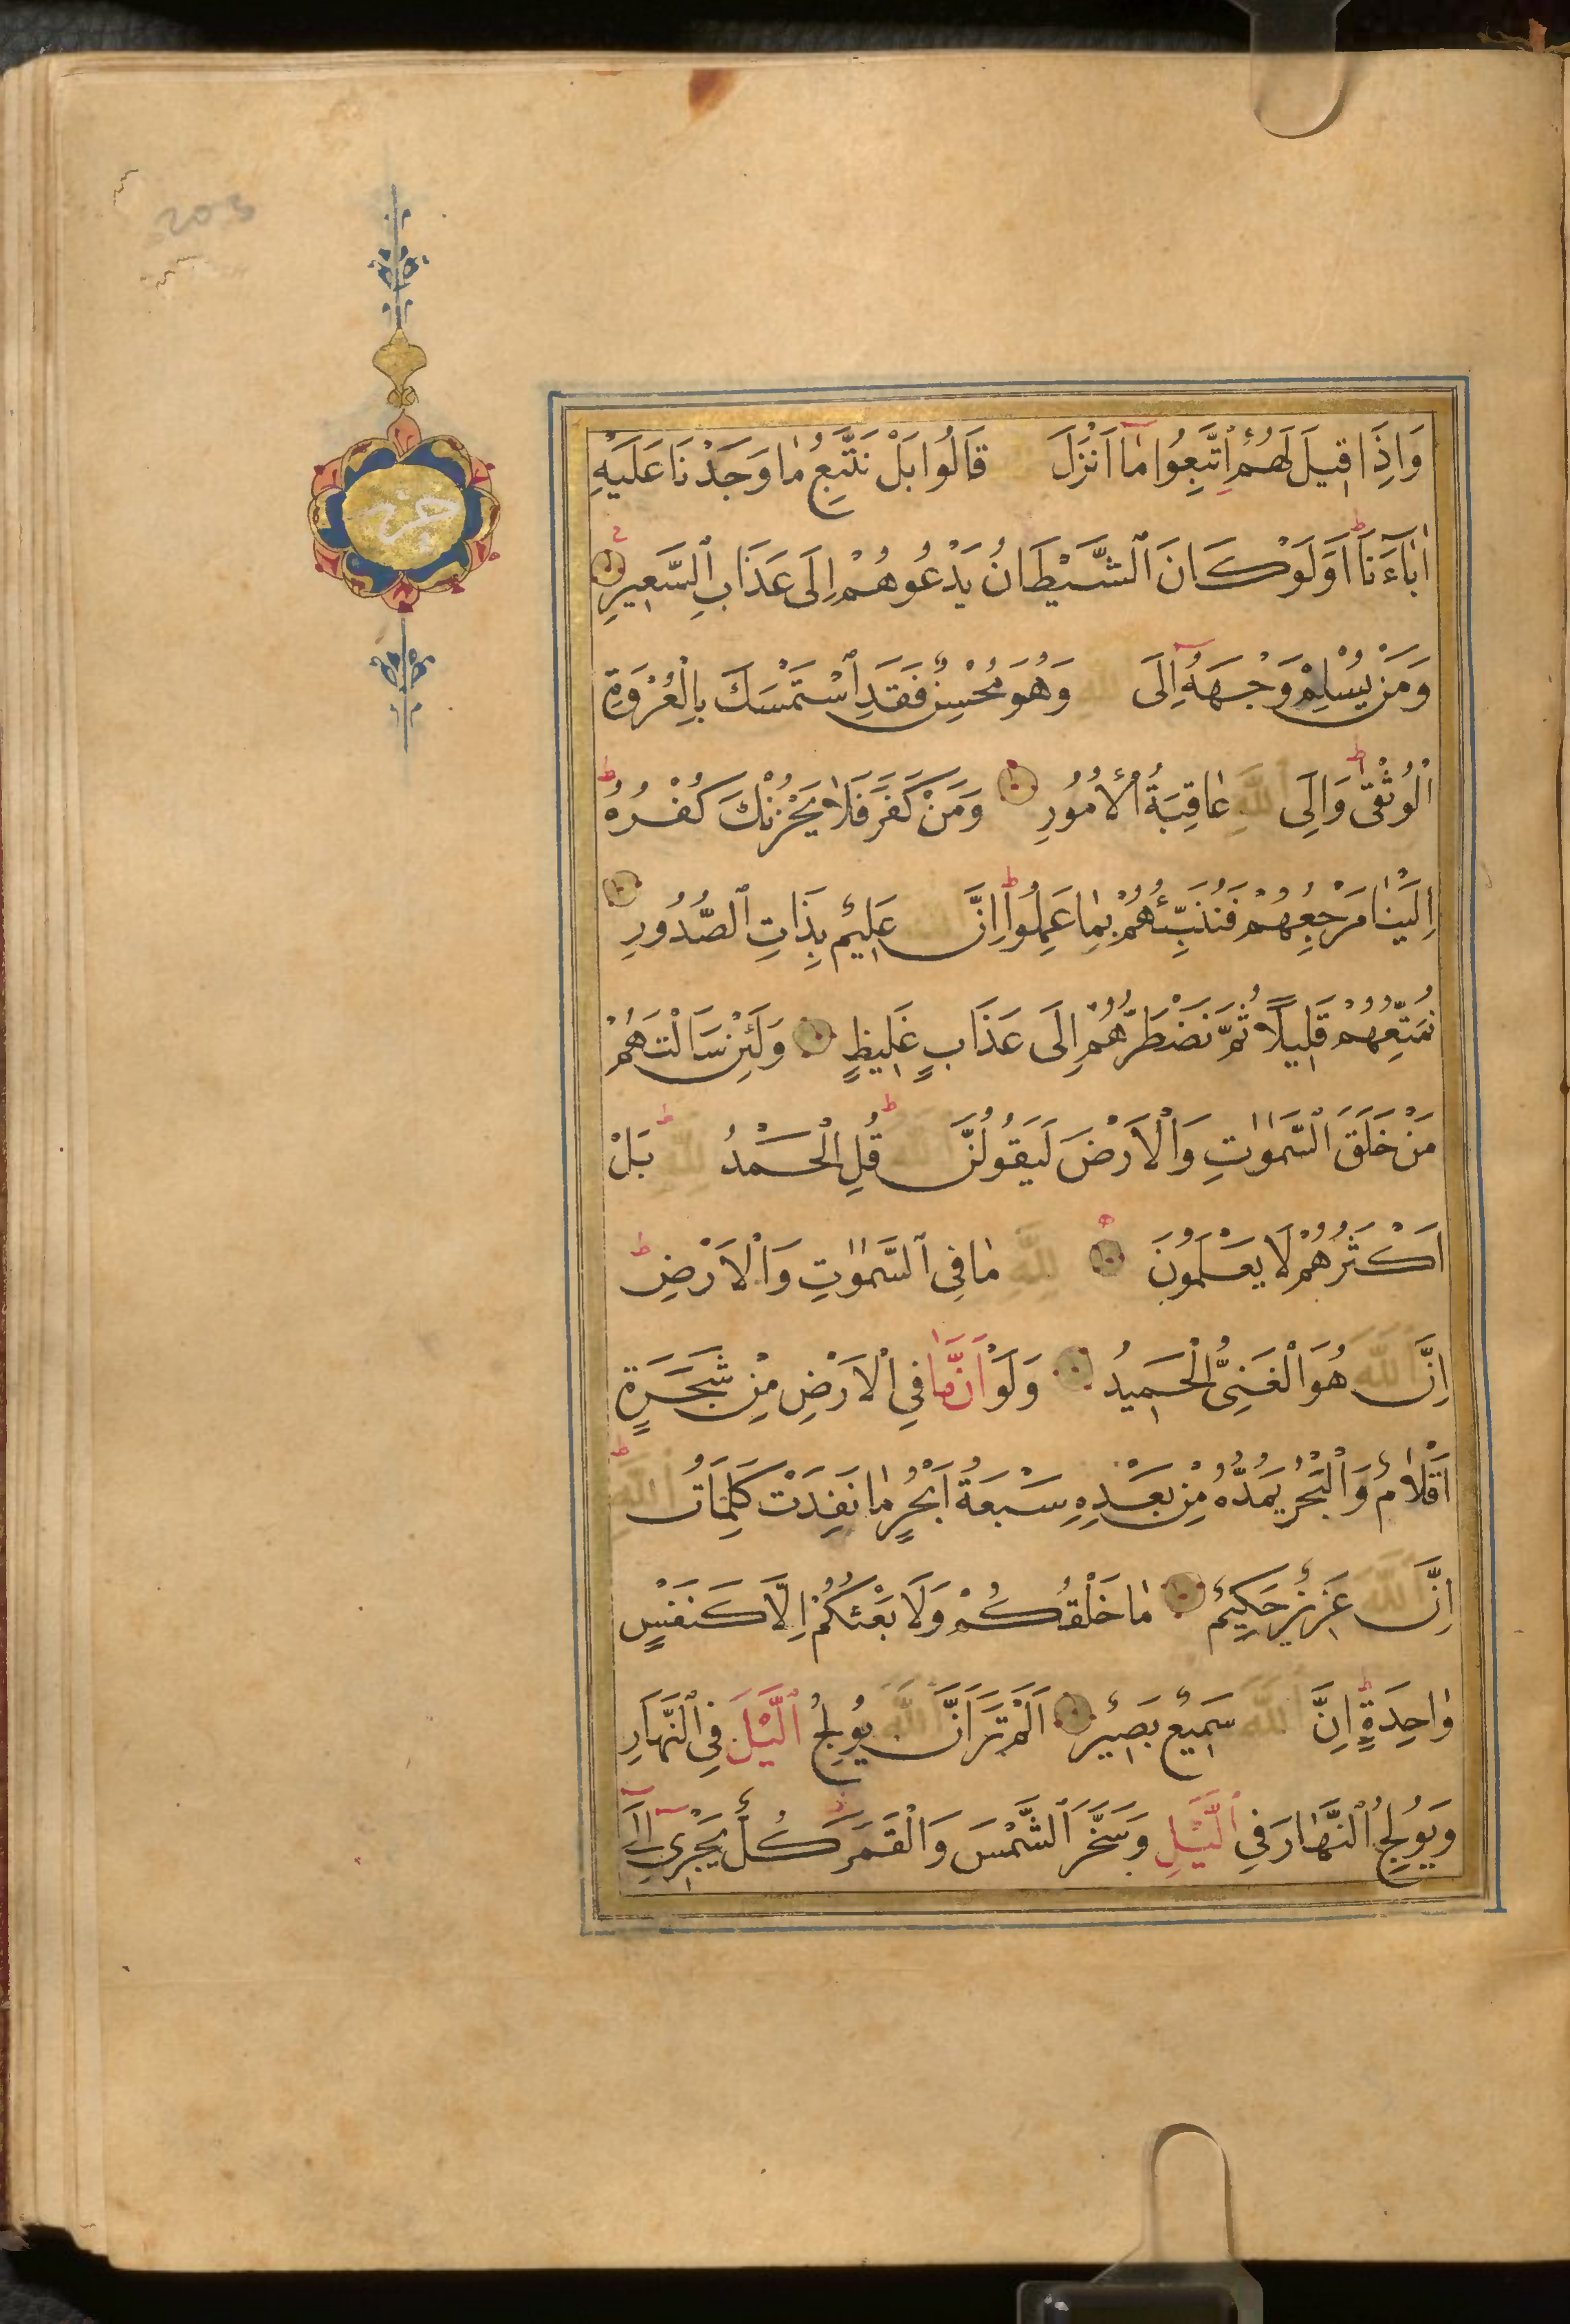 حزب
وَاِذَا قِيلَ لَهُمُ اتَّبِعُوا مَٓا اَنْزَلَ قَالُوا بَلْ نَتَّبِعُ مَا وَجَدْنَا عَلَيْهِ
اٰبَٓاءَنَا اَوَلَوْ كَانَ الشَّيْطَانُ يَدْعُوهُمْ اِلَى عَذَابِ السَّعِيرِ
وَمَنْ يُسْلِمْ وَجْهَهُٓ اِلَى اللّٰهِ وَهُوَ مُحْسِنٌ فَقَدِ اسْتَمْسَكَ بِالْعُرْوَةِ
الْوُثْقٰى وَاِلَى اللّٰهِ عَاقِبَةُ الْاُمُورِ وَمَنْ كَفَرَ فَلَا يَحْزُنْكَ كُفْرُهُ
اِلَيْنَا مَرْجِعُهُمْ فَنُنَبِّئُهُمْ بِمَا عَمِلُوا اِنَّ اللّٰهَ عَلِيمٌ بِذَاتِ الصُّدُورِ
نُمَتِّعُهُمْ قَلِيلًا ثُمَّ نَضْطَرُّهُمْ اِلَى عَذَابٍ غَلِيظٍ وَلَئِنْ سَاَلْتَهُمْ
مَنْ خَلَقَ السَّمٰوَاتِ وَالْاَرْضَ لَيَقُولُنَّ اللّٰهُ قُلِ الْحَمْدُ لِلّٰهِ بَلْ
اَكْثَرُهُمْ لَا يَعْلَمُونَ لِلّٰهِ مَا فِى السَّمٰوَاتِ وَالْاَرْضِ
اِنَّ اللّٰهَ هُوَ الْغَنِىُّ الْحَمِيدُ وَلَوْ اَنَّمَا فِى الْاَرْضِ مِنْ شَجَرَةٍ
اَقْلَامٌ وَالْبَحْرُ يَمُدُّهُ مِنْ بَعْدِهِ سَبْعَةُ اَبْحُرٍ مَا نَفِدَتْ كَلِمَاتُ اللّٰهِ
اِنَّ اللّٰهَ عَزِيزٌ حَكِيمٌ مَا خَلْقُكُمْ وَلَا بَعْثُكُمْ اِلَّا كَنَفْسٍ
وَاحِدَةٍ اِنَّ اللّٰهَ سَمِيعٌ بَصِيرٌ اَلَمْ تَرَ اَنَّ اللّٰهَ يُولِجُ الَّيْلَ فِى النَّهَارِ
وَيُولِجُ النَّهَارَ فِى الَّيْلِ وَسَخَّرَ الشَّمْسَ وَالْقَمَرَ كُلٌّ يَجْرِى اِلَٓى